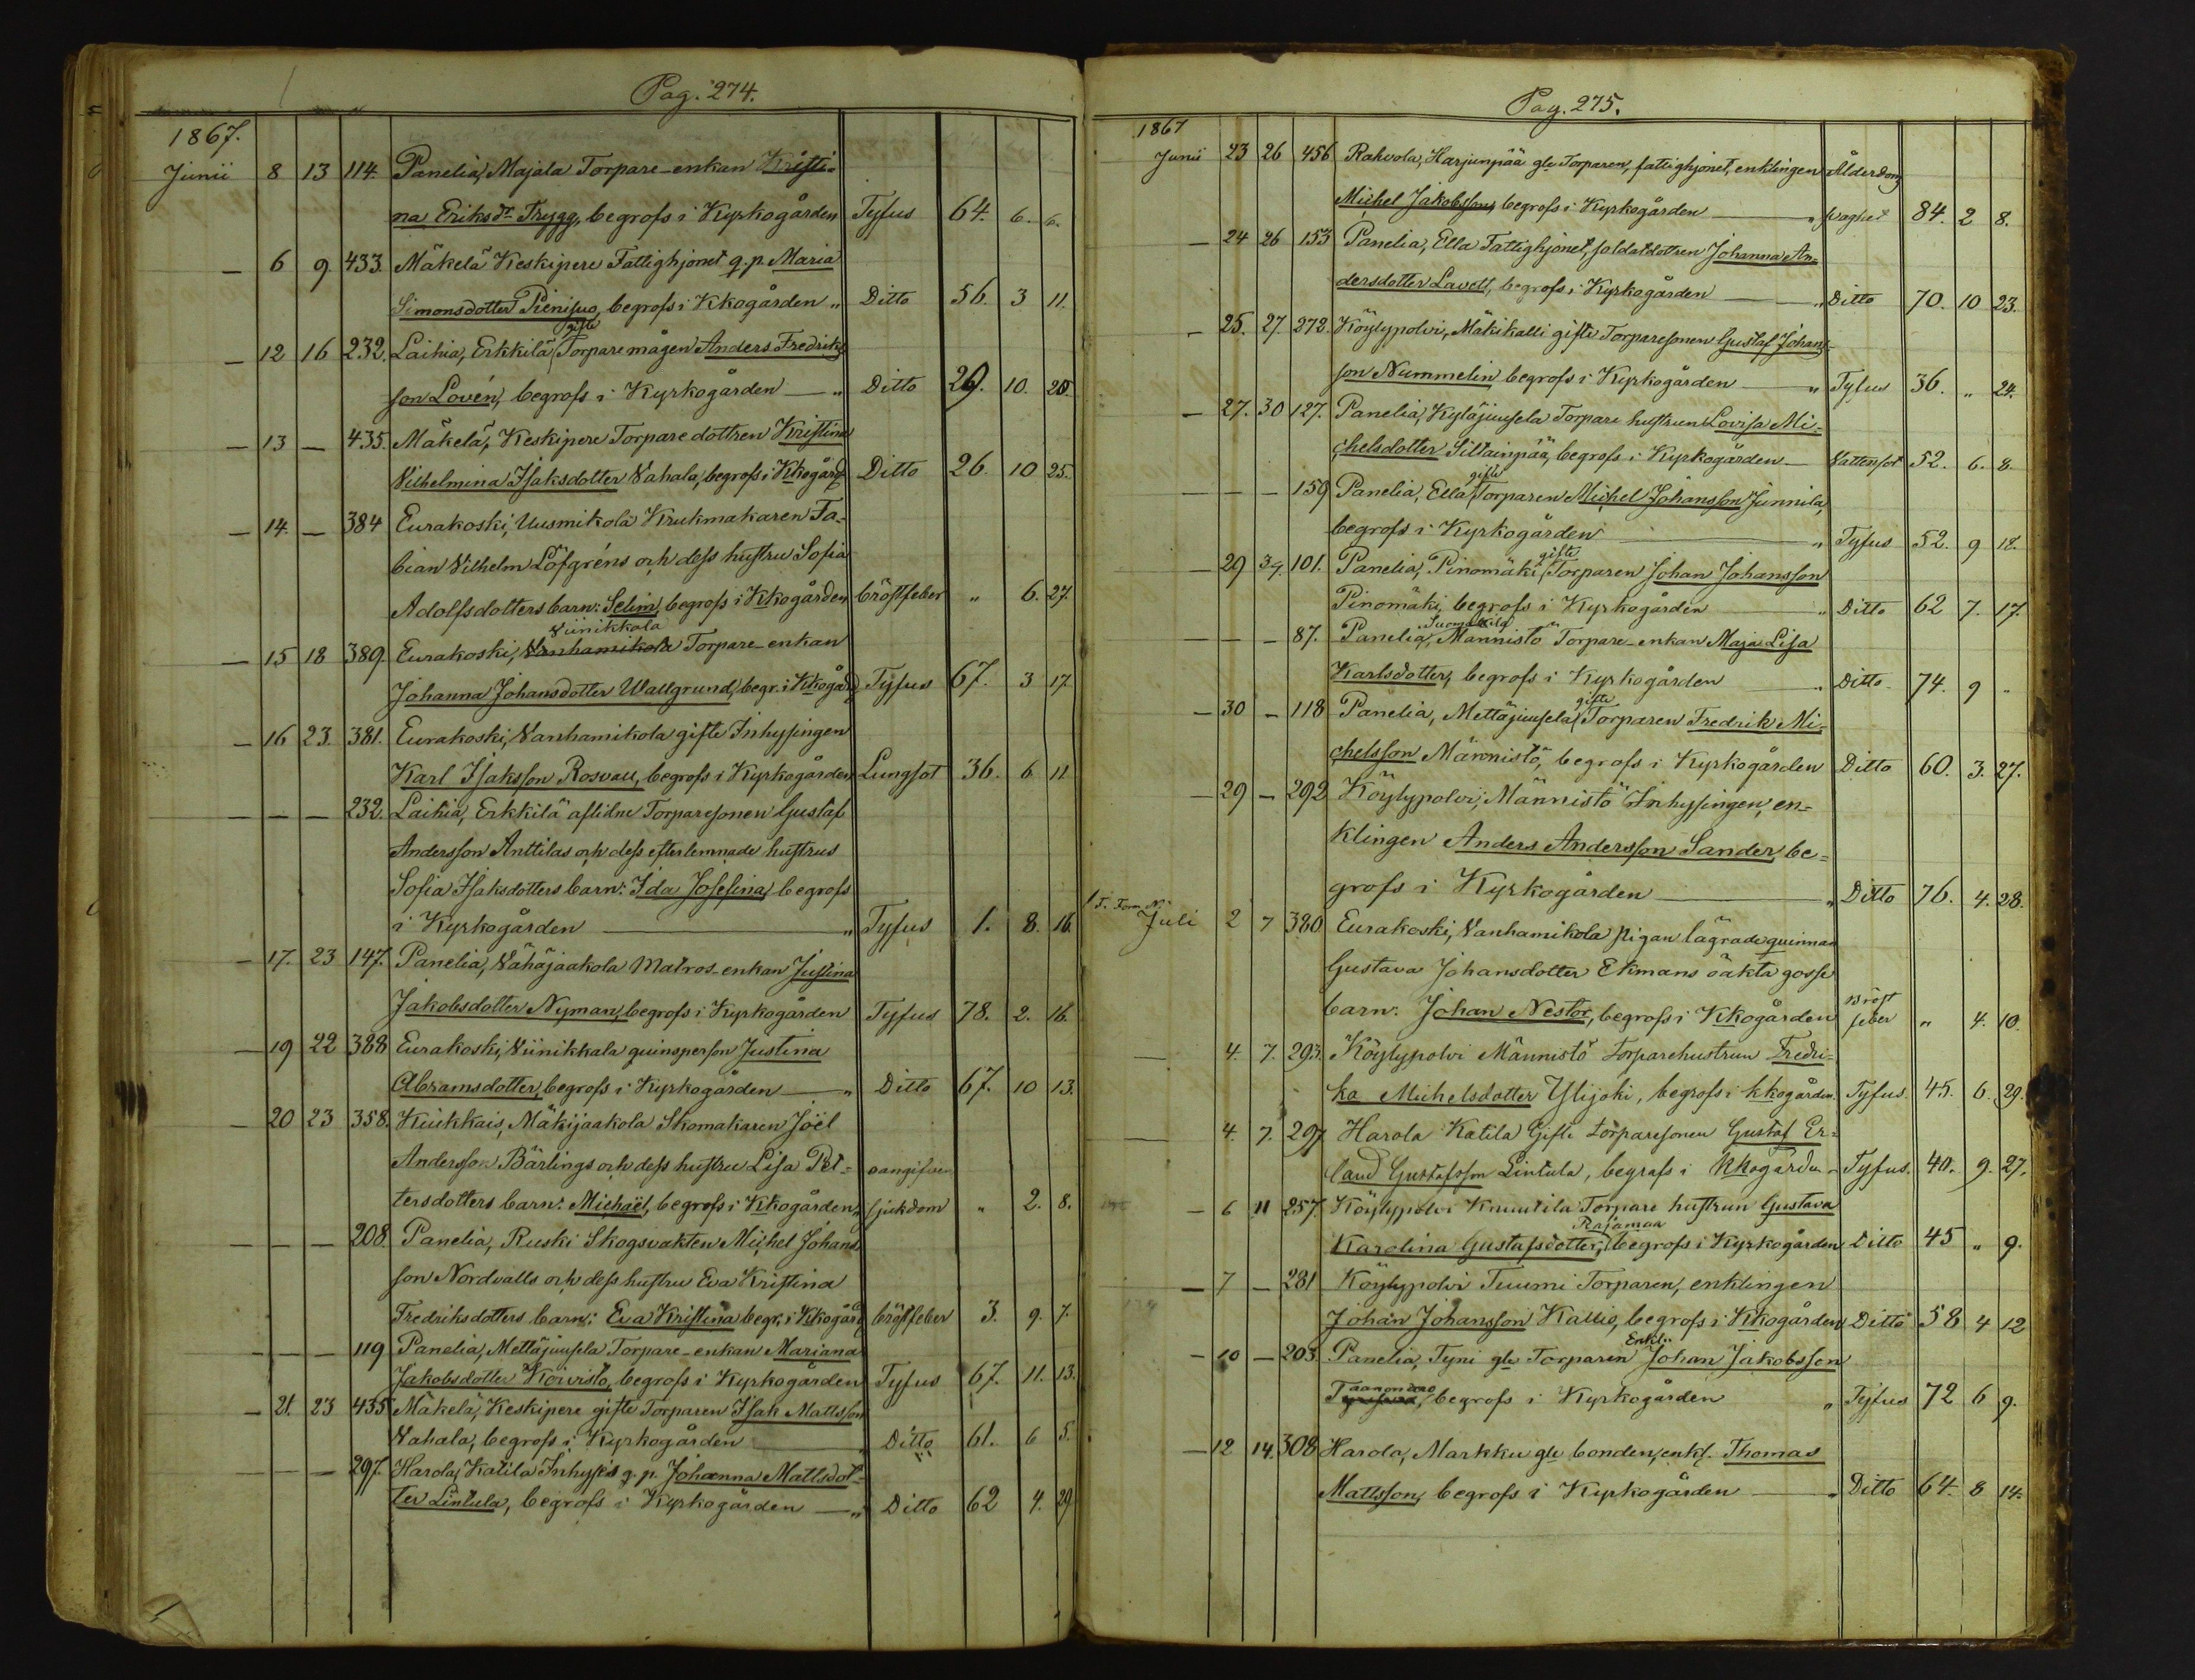 Pag. 274.
1867.
Junii 8 13 114. Panelia, Majala Torpare-enkan Kristi-
na Eriksdr Trygg, begrofs i Kyrkogården Tyfus 64. 6. 6.
— 6 9. 433. Mäkelä Keskipere Fattighjonet q.p. Maria
Simonsdotter Pienisuo, begrofs i Kkogården „ Ditto 56. 3 11.
gifte
— 12 16 232. Laihia, Erkkilä Torparemågen Anders Fredriks
son Lovén, begrofs i Kyrkogården — „ Ditto 29. 10. 20.
— 13 — 435. Mäkelä, Keskipere Torparedottren Kristina
Vilhelmina Isaksdotter Vahala, begrofs i Kkogård Ditto 26. 10 25.
— 14. — 384 Eurakoski, Uusmikola Krukmakaren Fa-
bian Vilhelm Löfgréns och dess hustru Sofia
Adolfsdotters barn: Selim, begrofs i Kkogården bröstfeber „ 6. 27.
Viinikkala
— 15 18 389. Eurakoski, Vanhamikola Torpare-enkan
Johanna Johansdotter Wallgrund, begr. i Kkogård Tyfus 67. 3 17.
— 16 23. 381. Eurakoski, Vanhamikola gifte Inhysingen
Karl Isaksson Rosvall, begrofs i Kyrkogården Lungsot 36. 6 11
— — — 232. Laihia, Erkkilä aflidne Torparesonen Gustaf
Andersson Anttilas och dess efterlemnade hustrus
Sofia Isaksdotters barn: Ida Josefina, begrofs
i Kyrkogården — „ Tyfus 1. 8. 16.
— 17. 23 147. Panelia, Vähäjaakola Matros-enkan Justina
Jakobsdotter Nyman, begrofs i Kyrkogården Tyfus 78. 2. 16.
— 19 22 388 Eurakoski, Viinikkala quinsperson Justina
Abramsdotter, begrofs i Kyrkogården — „ Ditto 67. 10 13.
— 20 23 358. Kiukkais, Mäkijaakola Skomakaren Joël
Andersson Bärlings och dess hustru Lisa Pet- oangifven
tersdotters barn: Michaël, begrofs i Kkogården, sjukdom „ 2. 8.
— — — 208. Panelia, Ruski Skogsvakten Michel Johans
son Nordvalls och dess hustru Eva Kristina
Fredriksdotters barn: Eva Kristina begr. i Kkogård bröstfeber 3. 9. 7.
— — — 119 Panelia, Mettäjuusela Torpare-enkan Mariana
Jakobsdotter Koivisto, begrofs i Kyrkogården Tyfus 67. 11. 13.
— 21. 23 435 Mäkelä, Keskipere gifte Torparen Isak Mattsson
Vahala, begrofs i Kyrkogården „ Ditto 61. 6 5.
— — — 297. Harola, Katila Inhyses q.p. Johanna Mattsdot-
ter Lintula, begrofs i Kyrkogården — „ Ditto 62 4. 29
Pag. 275.
1867
Junii 23 26 456 Rahvola, Harjunpää gle Torparen, fattighjonet, enklingen Ålderdoms
Michel Jakobsson, begrofs i Kyrkogården — „ svaghet 84. 2 8.
— 24 26 153 Panelia, Ella Fattighjonet, soldatdottren Johanna An-
dersdotter Lavell, begrofs i Kyrkogården — „ Ditto 70. 10 23.
— 25. 27. 272. Köylypolvi, Mäkikalli gifte Torparesonen Gustaf Johans-
son Nummelin begrofs i Kyrkogården — „ Tyfus 36. „ 24.
— 27. 30 127. Panelia, Kyläjuusela Torpare hustrun Lovisa Mi-
chelsdotter Siltainpää, begrofs i Kyrkogården — Vattensot 52. 6. 8.
gifte
— — — 159 Panelia, Ella Torparen Michel Johansson Junnila,
begrofs i Kyrkogården — „ Tyfus 52. 9 18.
gifte
— 29 34. 101. Panelia, Pinomäki, Torparen Johan Johansson
Pinomäki, begrofs i Kyrkogården — „ Ditto 62 7. 17.
— — — 87. Panelia, Männistö Torpare-enkan Maja Lisa
Karlsdotter, begrofs i Kyrkogården — „ Ditto 74. 9 „
gifte
— 30 — 118 Panelia, Mettäjuusela Torparen Fredrik Mi-
chelsson Männistö, begrofs i Kyrkogården Ditto 60. 3. 27.
— 29 — 292 Köylypolvi, Männistö Inhysingen, en-
klingen Anders Andersson Sander, be-
grofs i Kyrkogården — „ Ditto 76. 4. 28.
Juli 2 7 380 Eurakoski, Vanhamikola pigan lägrade quinnan
Gustava Johansdotter Ekmans oäkta gosse
barn: Johan Nestor, begrofs i Kkogården Bröst feber „ 4. 10.
— 4. 7. 293. Köylypolvi Männistö Torparehustrun Fredri-
ka Michelsdotter Ylijoki, begrofs i kkogården. Tyfus. 45. 6. 29.
— 4. 7. 297 Harola Katila Gifte torparesonen Gustaf Er-
land Gustafsson Lintula, begrafs i kkogården Tyfus. 40. 9. 27.
— 6 11 257. Köylypolvi Knuutila Torpare hustrun Gustava
Rajamaa
Karolina Gustafsdotter, begrofs i Kyrkogården Ditto 45 „ 9.
— 7 — 281 Köylypolvi Tuumi Torparen, enklingen
Johan Johansson Kallio, begrofs i Kkogården Ditto 58 4 12
Enkl:
— 10 — 203. Panelia, Tyni gle Torparen Johan Jakobsson
begrofs i Kyrkogården „ Tyfus 72 6 9.
— 12 14. 308 Harola, Markku gle bonden, enkl. Thomas
Mattsson, begrofs i Kyrkogården — „ Ditto 64. 8 14.